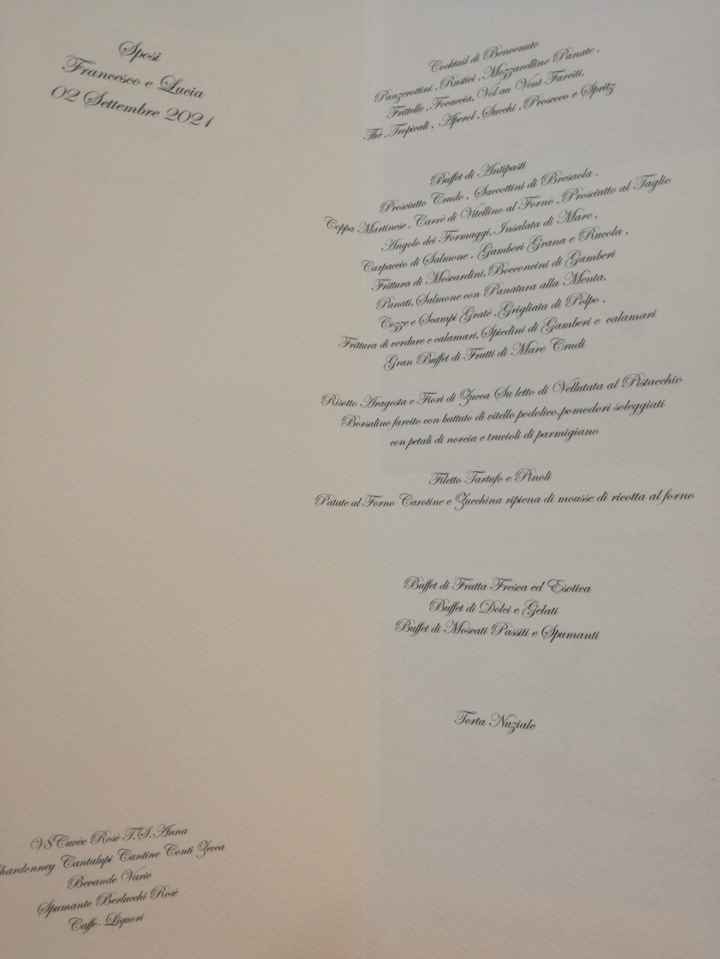 Sposi
Francesco e Lucia
02 Settembre 2021
Cocktail di Benvenuto
Panzerottini, Rustici, Mozzarelline Panate,
Frittelle, Focaccia, Vol au Vent Farciti,
The, Tropicali, Aperol, Succhi, Prosecco e Spritz
Buffet di Antipasti
Prosciutto Crudo, Saccottini di Bresaola,
Coppa Martinese, Carrè di Vitellino al Forno, Prosciutto al Taglio
Angolo dei Formaggi, Insalata di Mare,
Carpaccio di Salmone, Gamberi Grana e Rucola,
Frittura di Moscardini, Bocconcini di Gamberi
Panati, Salmone con Panatura alla Menta,
Cozze e Scampi Gratè, Grigliata di Polpo,
Frittura di verdure e calamari, Spiedini di Gamberi e calamari
Gran Buffet di Frutti di Mare Crudi
Risotto Aragosta e Fiori di Zucca Su letto di Vellutata al Pistacchio
Borsalino farcito con battuto di vitello podolico, pomodori soleggiati
con petali di norcia e trucioli di parmigiano
Filetto Tartufo e Pinoli
Patate al Forno Carotine e Zucchina ripiena di mousse di ricotta al forno
Buffet di Frutta Fresca ed Esotica
Buffet di Dolci e Gelati
Buffet di Moscati Passiti e Spumanti
Torta Nuziale
V8 Cuvèe Rosè T.S. Anna
hardonney Cantalupi Cantine Conti Zecca
Bevande Varie
Spumante Berlucchi Rosè
Caffe - Liquori